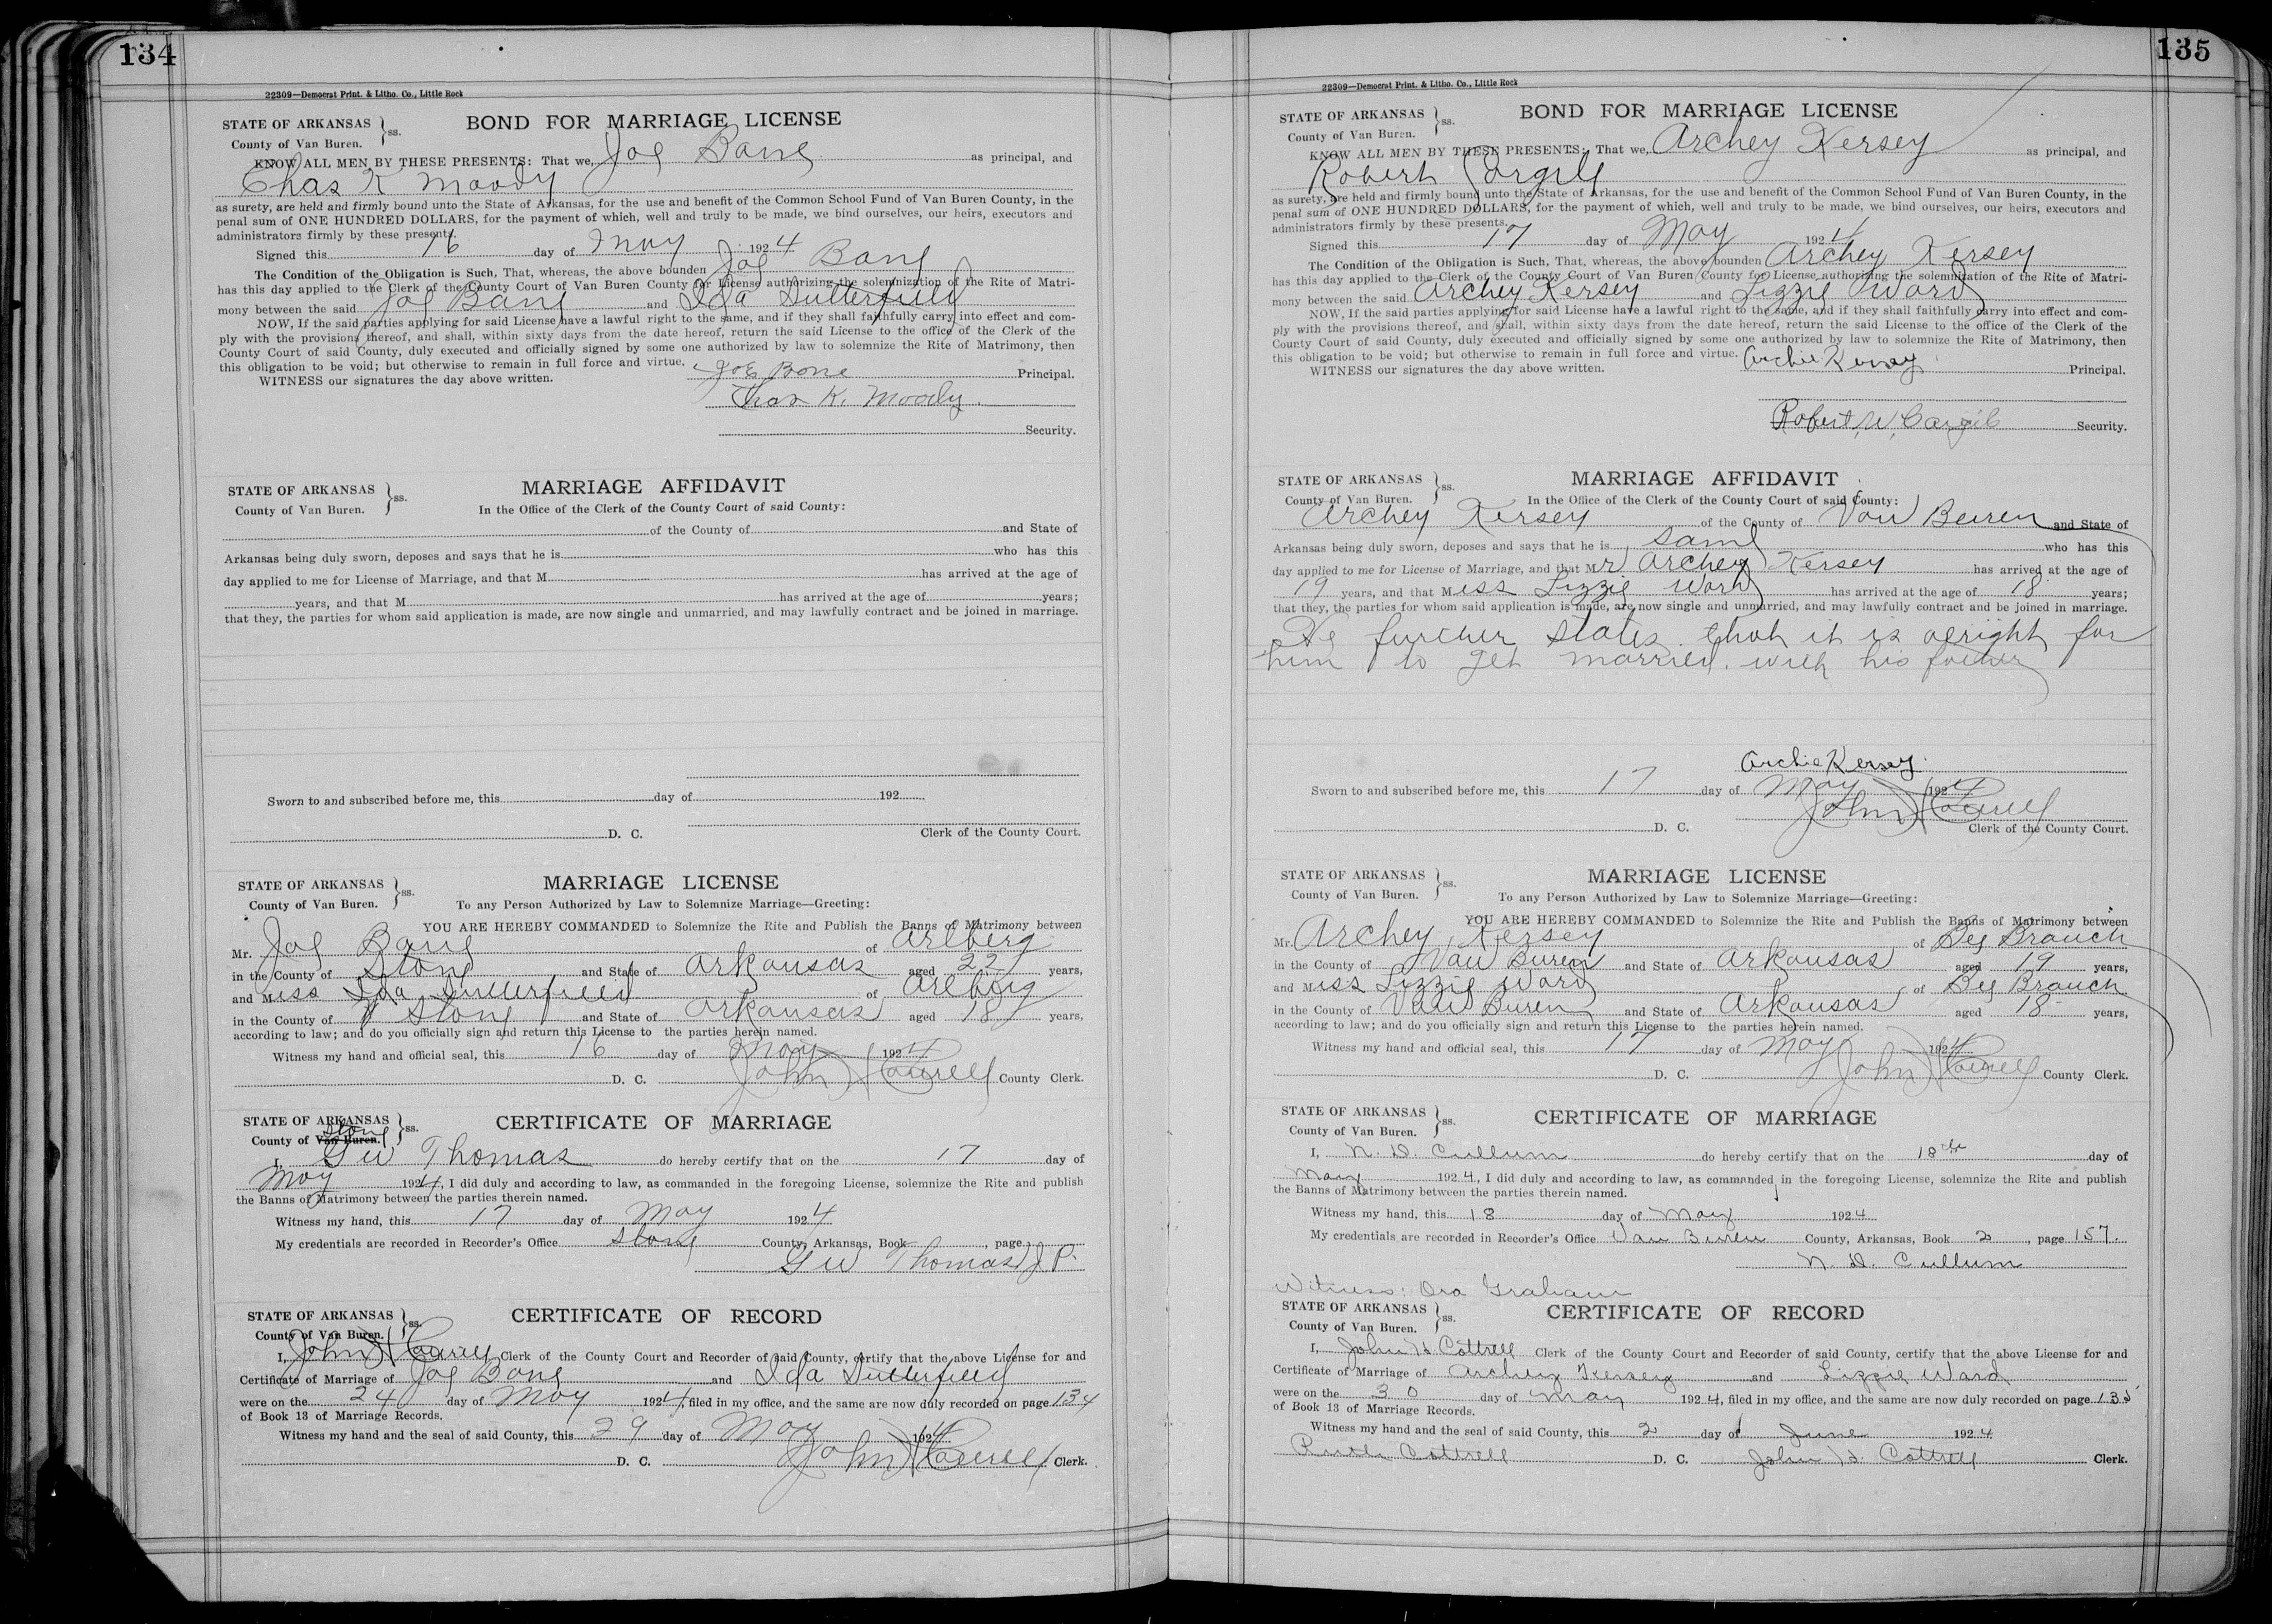 134
22309—Democrat Print. & Litho. Co., Little Rock
STATE OF ARKANSAS
County of Van Buren. } ss.
BOND FOR MARRIAGE LICENSE
KNOW ALL MEN BY THESE PRESENTS: That we, Joe Bone as principal, and
Chas K Moody
as surety, are held and firmly bound unto the State of Arkansas, for the use and benefit of the Common School Fund of Van Buren County, in the
penal sum of ONE HUNDRED DOLLARS, for the payment of which, well and truly to be made, we bind ourselves, our heirs, executors and
administrators firmly by these presents.
Signed this 16 day of May 1924
The Condition of the Obligation is Such, That, whereas, the above bounden Joe Bone
has this day applied to the Clerk of the County Court of Van Buren County for License authorizing the solemnization of the Rite of Matri-
mony between the said Joe Bone and Ida Sutterfield
NOW, If the said parties applying for said License have a lawful right to the same, and if they shall faithfully carry into effect and com-
ply with the provisions thereof, and shall, within sixty days from the date hereof, return the said License to the office of the Clerk of the
County Court of said County, duly executed and officially signed by some one authorized by law to solemnize the Rite of Matrimony, then
this obligation to be void; but otherwise to remain in full force and virtue.
WITNESS our signatures the day above written.
Joe Bone Principal.
Chas K. Moody
Security.
STATE OF ARKANSAS
County of Van Buren. } ss.
MARRIAGE AFFIDAVIT
In the Office of the Clerk of the County Court of said County:
of the County of and State of
Arkansas being duly sworn, deposes and says that he is who has this
day applied to me for License of Marriage, and that M has arrived at the age of
years, and that M has arrived at the age of years;
that they, the parties for whom said application is made, are now single and unmarried, and may lawfully contract and be joined in marriage.
Sworn to and subscribed before me, this day of 192
D. C. Clerk of the County Court.
STATE OF ARKANSAS
County of Van Buren. } ss.
MARRIAGE LICENSE
To any Person Authorized by Law to Solemnize Marriage—Greeting:
YOU ARE HEREBY COMMANDED to Solemnize the Rite and Publish the Banns of Matrimony between
Mr. Joe Bone of Arlberg
in the County of Stone and State of Arkansas aged 22 years,
and Miss Ida Sutterfield of Arlberg
in the County of Stone and State of Arkansas aged 18 years,
according to law; and do you officially sign and return this License to the parties herein named.
Witness my hand and official seal, this 16 day of May 1924
D. C. John H Cottrell County Clerk.
STATE OF ARKANSAS
County of Van Buren. Stone } ss.
CERTIFICATE OF MARRIAGE
I, G W Thomas do hereby certify that on the 17 day of
May 1924, I did duly and according to law, as commanded in the foregoing License, solemnize the Rite and publish
the Banns of Matrimony between the parties therein named.
Witness my hand, this 17 day of May 1924
My credentials are recorded in Recorder's Office Stone County, Arkansas, Book , page
G W Thomas J. P.
STATE OF ARKANSAS
County of Van Buren. } ss.
CERTIFICATE OF RECORD
I, John H Cottrell Clerk of the County Court and Recorder of said County, certify that the above License for and
Certificate of Marriage of Joe Bone and Ida Sutterfield
were on the 24 day of May 1924, filed in my office, and the same are now duly recorded on page 134
of Book 13 of Marriage Records.
Witness my hand and the seal of said County, this 29 day of May 1924
D. C. John H Cottrell Clerk.
135
22309—Democrat Print. & Litho. Co., Little Rock
STATE OF ARKANSAS
County of Van Buren. } ss.
BOND FOR MARRIAGE LICENSE
KNOW ALL MEN BY THESE PRESENTS: That we, Archey Kersey as principal, and
Robert Cargile
as surety, are held and firmly bound unto the State of Arkansas, for the use and benefit of the Common School Fund of Van Buren County, in the
penal sum of ONE HUNDRED DOLLARS, for the payment of which, well and truly to be made, we bind ourselves, our heirs, executors and
administrators firmly by these presents.
Signed this 17 day of May 1924
The Condition of the Obligation is Such, That, whereas, the above bounden Archey Kersey
has this day applied to the Clerk of the County Court of Van Buren County for License authorizing the solemnization of the Rite of Matri-
mony between the said Archey Kersey and Lizzie Ward
NOW, If the said parties applying for said License have a lawful right to the same, and if they shall faithfully carry into effect and com-
ply with the provisions thereof, and shall, within sixty days from the date hereof, return the said License to the office of the Clerk of the
County Court of said County, duly executed and officially signed by some one authorized by law to solemnize the Rite of Matrimony, then
this obligation to be void; but otherwise to remain in full force and virtue.
WITNESS our signatures the day above written.
Archie Kersey Principal.
Robert W. Cargile Security.
STATE OF ARKANSAS
County of Van Buren. } ss.
MARRIAGE AFFIDAVIT
In the Office of the Clerk of the County Court of said County:
Archey Kersey of the County of Van Buren and State of
Arkansas being duly sworn, deposes and says that he is same who has this
day applied to me for License of Marriage, and that Mr Archey Kersey has arrived at the age of
19 years, and that Miss Lizzie Ward has arrived at the age of 18 years;
that they, the parties for whom said application is made, are now single and unmarried, and may lawfully contract and be joined in marriage.
He further states that it is alright for
him to get married with his father
Archie Kersey
Sworn to and subscribed before me, this 17 day of May 1924
John H Cottrell
D. C. Clerk of the County Court.
STATE OF ARKANSAS
County of Van Buren. } ss.
MARRIAGE LICENSE
To any Person Authorized by Law to Solemnize Marriage—Greeting:
YOU ARE HEREBY COMMANDED to Solemnize the Rite and Publish the Banns of Matrimony between
Mr. Archey Kersey of Bee Branch
in the County of Van Buren and State of Arkansas aged 19 years,
and Miss Lizzie Ward of Bee Branch
in the County of Van Buren and State of Arkansas aged 18 years,
according to law; and do you officially sign and return this License to the parties herein named.
Witness my hand and official seal, this 17 day of May 1924
D. C. John H Cottrell County Clerk.
STATE OF ARKANSAS
County of Van Buren. } ss.
CERTIFICATE OF MARRIAGE
I, N. D. Cullum do hereby certify that on the 18th day of
May 1924, I did duly and according to law, as commanded in the foregoing License, solemnize the Rite and publish
the Banns of Matrimony between the parties therein named.
Witness my hand, this 18 day of May 1924
My credentials are recorded in Recorder's Office Van Buren County, Arkansas, Book 2, page 157.
N. D. Cullum
Witness: Ora Graham
STATE OF ARKANSAS
County of Van Buren. } ss.
CERTIFICATE OF RECORD
I, John H Cottrell Clerk of the County Court and Recorder of said County, certify that the above License for and
Certificate of Marriage of Archey Kersey and Lizzie Ward
were on the 30 day of May 1924, filed in my office, and the same are now duly recorded on page 135
of Book 13 of Marriage Records.
Witness my hand and the seal of said County, this 2 day of June 1924
Ruth Cottrell D. C. John H. Cottrell Clerk.